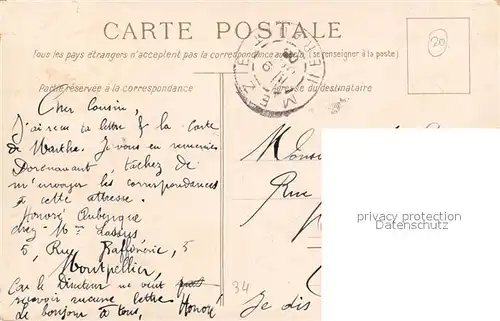 CARTE POSTALE
Tous les pays étrangers n'acceptent pas la correspondance au recto (se renseigner à la poste)
Partie réservée à la correspondance
Adresse du destinataire
20
Cher Cousin,
J'ai reçu ta lettre & la carte
de Marthe. Je vous en remercie
Dorénavant, tâchez de
m'envoyer les correspondances
à cette adresse.
Honoré Aubergue
chez Mme Lassus
5, Rue Raffinerie, 5
Montpellier,
Car le Directeur ne veut pas
recevoir aucune lettre
Le bonjour à tous, Honoré
Rue
34
Je dis
privacy protection
Datenschutz